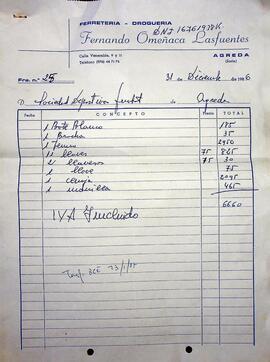 FERRETERIA - DROGUERIA
DNI 16761978K
Fernando Omeñaca Lasfuentes
Calle Venerable, 9 y 11
Teléfono (976) 64 71 74
AGREDA
(Soria)
Fra. n.º 25
31 de Diciembre de 1986
D. Sociedad Deportiva de Agreda
Fecha CONCEPTO Precio TOTAL
1 Bote Blanco 185
1 Brocha 35
1 2950
11 llaves 75 825
2 llaveros 75 30
1 llave 75
1 2095
1 manilla 465
IVA Incluido 6660